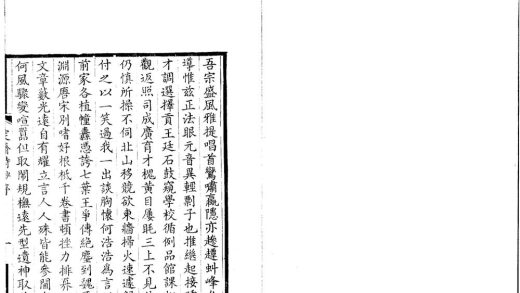 吾宗盛風雅提唱首鸞嘯嬴隱亦趨蹌虯峰
導惟茲正法眼元音異輕剽子也推繼起接
才調選擇貢王廷石鼓窺學校循例品館課
觀返照司成廣育才槐黃目屢眊三上不見
仍慎所操不伺北山移競欲東牆掃火速遽
付之以一笑過我一出談胸懷何浩浩為言
前家各植幢纛憑誇七葉王爭傳絕麈到魏
淵源唐宋別嗜好根柢千卷書頓挫力排奡
文章藪光遠自有耀立言人人殊皆能參閫
何風驟變喧囂但取鬧規橅遠先型遺神取